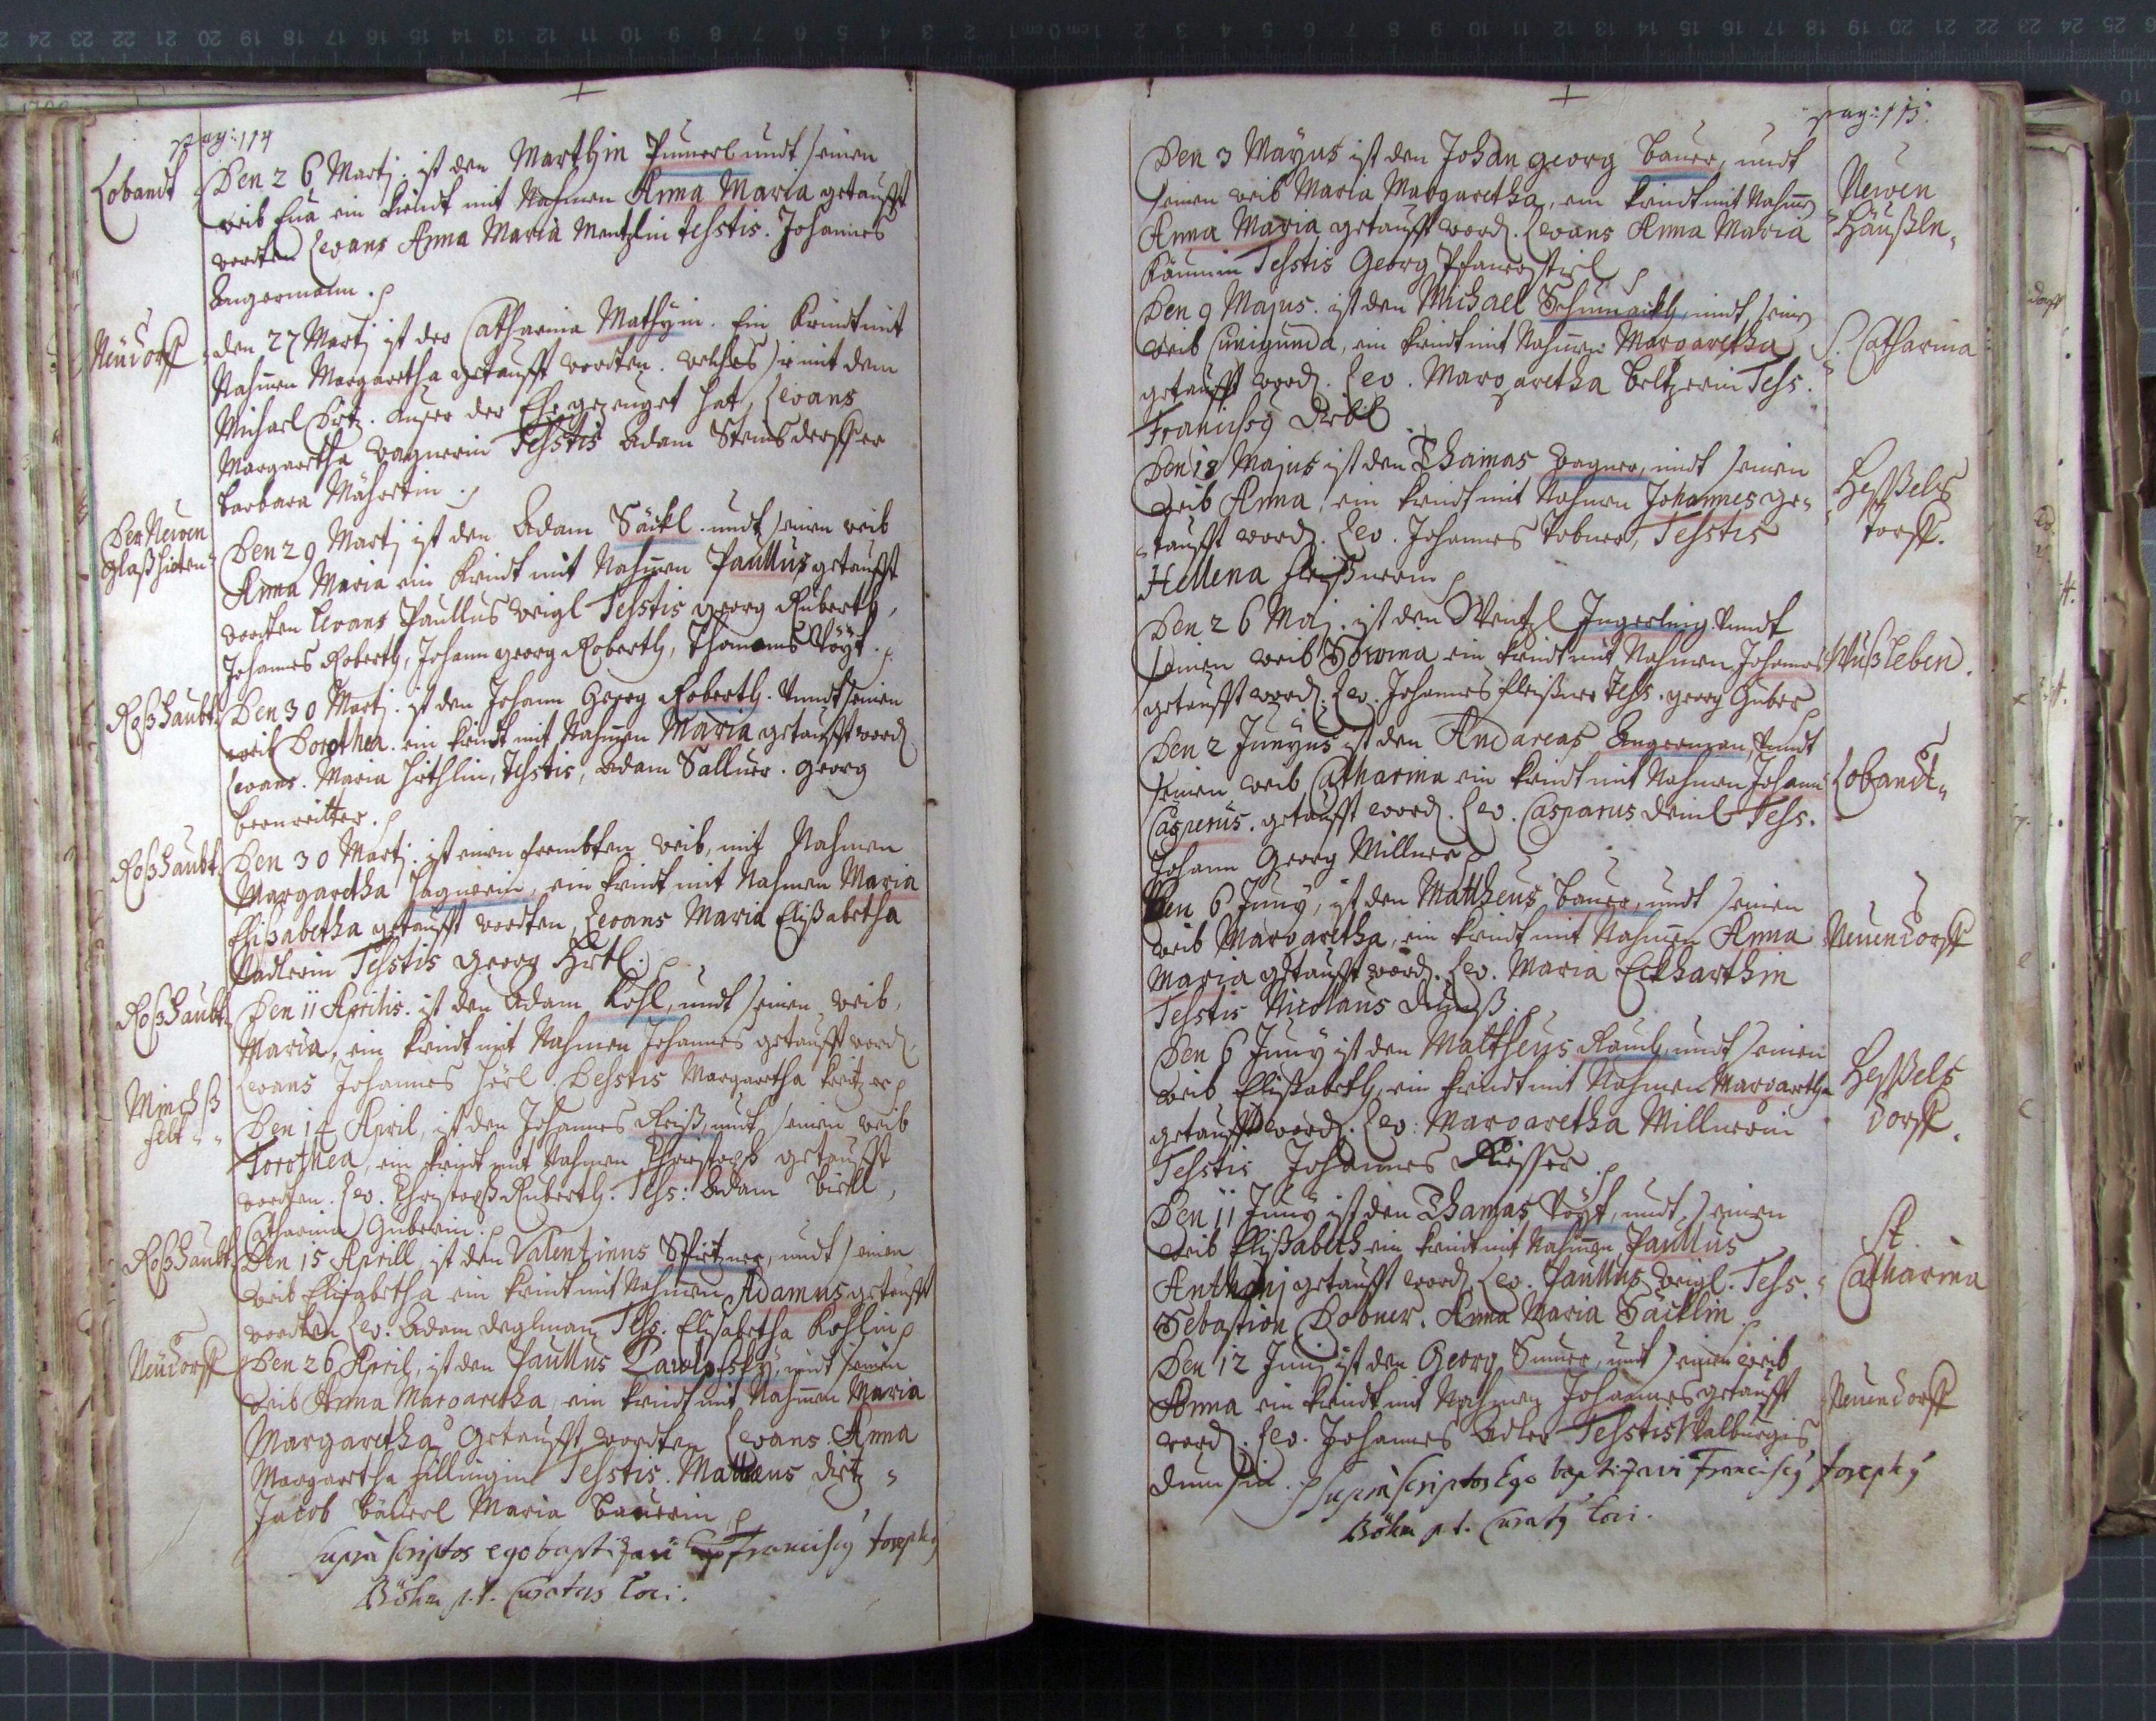 pag: 114
Lobandt
Den 26 Martj: ist den Marthin Pumerl undt seinen
weib Eua ein kindt mit Nahmen Anna Maria getaufft
worden Levans Anna Maria Mentzlin Testis. Johannes
Angermann.
Neudorff
den 27 Martj ist der Catharina Mathyin. Ein Kindt mit
Nahmen Margaretha getaufft worden. welches sie mit dem
Michael Dietz. auser der Ehe gezeuget hat, Levans
Margaretha Wagnerin Testis Adam
Barbara
Der Neuen
Glaßhütten
Den 29 Martj ist den Adam Säckl. undt seinen weib
Anna Maria ein Kindt mit Nahmen Paullus getaufft
worden Levans Paullus Weigl Testis Georg Ruberth,
Johannes Roberth, Johann georg Roberth, Thomas Vöyt.
Roßhaubt
Den 30 Martj: ist den Johann Georg Roberth. Vundt seinen
weib Dorothea. ein kindt mit Nahmen Maria getaufft word
Levans. Maria Hirthlin, Testis, Adam Sallner. Georg
Beenreitter.
Roßhaubt
Den 30 Martj: ist einen frembten weib, mit Nahmen
Margaretha Hagnerin, ein kindt mit Nahmen Maria
Elisabetha getaufft worden, Levans Maria Elisabetha
Nadlerin Testis Georg Hirtl.
Roßhaubt
Den 11 Aprilis. ist den Adam Kohl, undt seinen weib,
Maria, ein kindt mit Nahmen Johannes getaufft word,
Levans Johannes Hörl. Testis Margaretha
Minchß
felt
Den 14 April, ist den Johannes Reiß, undt seinen weib
Torothea, ein kindt mit Nahmen Christoph getaufft
worden. Lev. Christoph Ruberth. Tests: Adam
Catharina Guberin.
Roßhaubt
Den 15 Aprill ist den Valentinus Spitzner, undt seinen
weib Elisabetha ein kindt mit Nahmen Adamus getaufft
worden Lev. Adam Deglman Tess. Elisabetha Kohlin
Neudorff
Den 26 April, ist den Paullus undt seinen
weib Anna Margaretha, ein kindt mit Nahmen Maria
Margaretha Getaufft worden Levans. Anna
Margaretha Hillingin Testis. Mattheus Dietz
Jacob Bäuerl Maria Bauerin
supra scriptos ego baptizavi Franciscy Josephy
Böhm p.t. Curatus loci.
pag: 115.
Den 3 Mayus ist den Johan georg Bauer, undt
seinen weib Maria Margaretha, ein kindt mit Nahmen
Anna Maria getaufft word. Levans Anna Maria
Testis Georg
Neuen
Häußln
Den 9 Majus. ist den Michael Schumackh, undt seinen
weib Cunigunda, ein kindt mit Nahmen Margaretha
getaufft word. Lev. Margaretha Beltzerin Tess.
Franciscy Diebl
S. Catharina
Den 18 Majus ist den Thamas Wagner, undt seinen
weib Anna, ein kindt mit Nahmen Johannes ge-
taufft word. Lev. Johannes Tobner, Testis
Hellena Fleißnerin
Heßßels
torff.
Den 26 Maj. ist den Wentzl Ingerling. Vundt
seinen weib ein kindt mit Nahmen Johannes
getaufft word. Lev. Johannes Fleißner Tess. georg Guber
Wußleben.
Den 2 Junyus ist den Andareas Angerman, Vundt
seinen weib Catharina ein kindt mit Nahmen Johann
Casperus. getaufft word. Lev. Casparus Deml Tess.
Johann Georg Millner
Lobandt
Den 6 Juny, ist den Mattheus Bauer, undt seinen
weib Margaretha, ein kindt mit Nahmen Anna
Maria getaufft word. Lev. Maria Eckharthin
Testis Nicolaus Dumß.
Neuendorff
Den 6 Juny ist den Mattheus Raub, undt seinen
weib Elisabeth, ein kindt mit Nahmen Margaretha
getaufft word. Lev. Margaretha Millnerin
Testis Johannes
Heßßels
dorff.
Den 11 Juny ist den Thamas Vöyt, undt, seinen
weib Elisabeth ein kindt mit Nahmen Paullus
Anthonj getaufft word Lev. Paullus Weigl. Tess.
Sebastion Dobner. Anna Maria Säcklin.
St
Catharina
Den 12 Juni, ist den Georg undt seinen weib
Anna ein kindt mit Nahmen Johannes getaufft
word. Lev. Johannes Adler Testis Walburgis
Dumsin.
Neuendorff
supra scriptos Ego baptizavi Franciscy Josephy
Böhm p.t. Curaty loci.